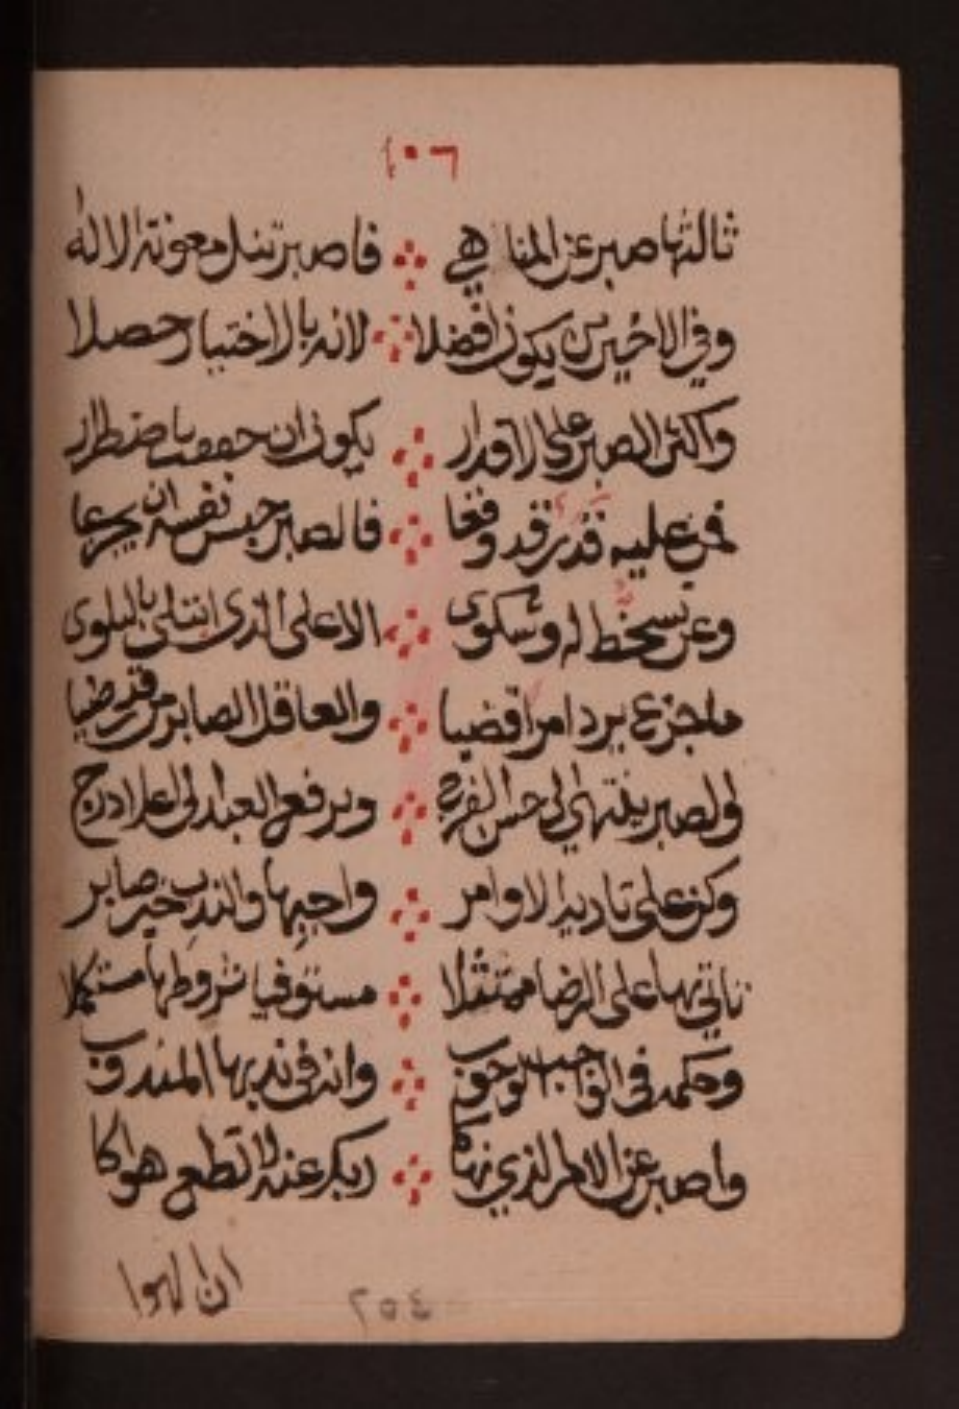 ١٠٦
ثالثها صبر عن المناهي فاصبر تنل معونة الاله
وفي الاخيرين يكون افضلا لانه بالاختيار حصلا
واكثر الصبر على الاقدار يكون ان حققت باضطرار
فمن عليه قدر قد وقعا فالصبر حبس نفسه ان يجزعا
وعن تسخط له وشكوى الا على الذي ابتلى بالبلوى
ما جزع يرد امرا قضيا والعاقل الصابر من قد رضيا
ولصبر ينتهي لى حسن الفرج ويرفع العبد لى اعلا درج
وكن على تادية الاوامر واجبها والندب خير صابر
تاتي بها على الرضا ممتثلا مستوفيا شروطها مستكملا
وحكمه في الواجب الوجوب وانه في ندبها المندوب
واصبر عن الامر الذي نهاكا ربك عنه لا تطع هواكا
ان لهوا
٢٥٤